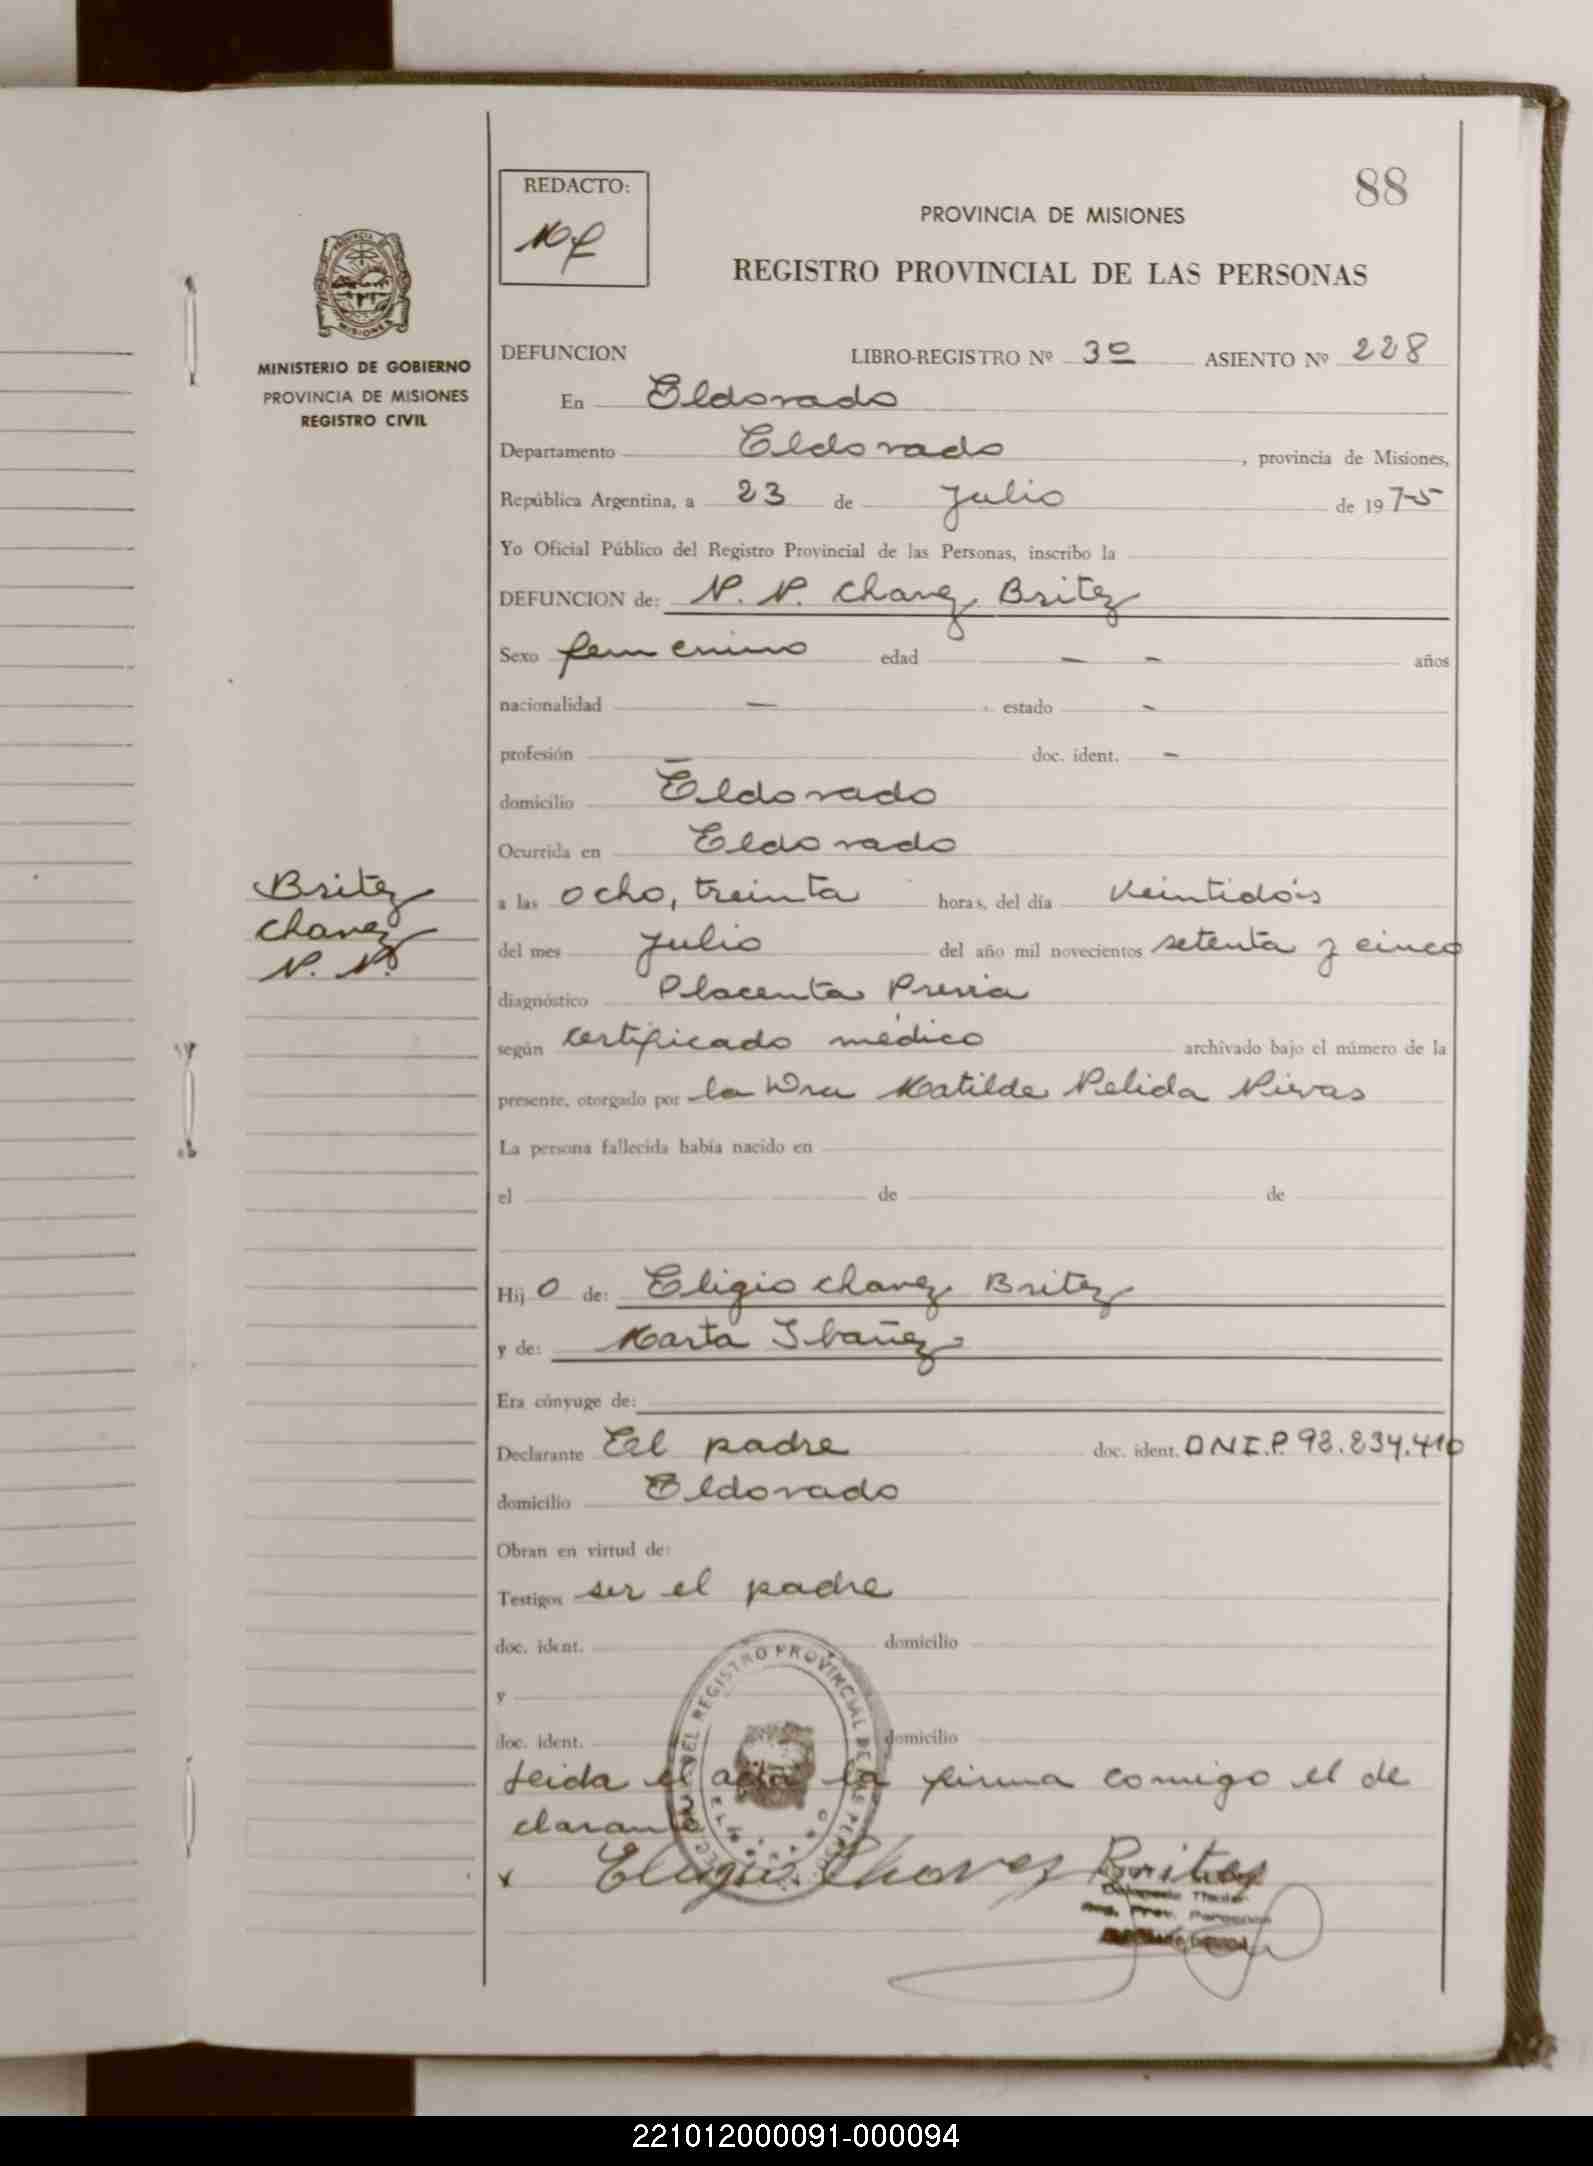 88
REDACTO:
PROVINCIA DE MISIONES
REGISTRO PROVINCIAL DE LAS PERSONAS
MINISTERIO DE GOBIERNO
PROVINCIA DE MISIONES
REGISTRO CIVIL
DEFUNCION LIBRO-REGISTRO Nº 3º ASIENTO Nº 228
En Eldorado
Departamento Eldorado, provincia de Misiones,
República Argentina, a 23 de Julio de 1975
Yo Oficial Público del Registro Provincial de las Personas, inscribo la
DEFUNCION de: N. N. Chavez Britez
Sexo femenino edad — — años
nacionalidad — estado —
profesión — doc. ident. —
domicilio Eldorado
Ocurrida en Eldorado
Britez
Chavez
N. N.
a las ocho, treinta horas, del día veintidós
del mes Julio del año mil novecientos setenta y cinco
diagnóstico Placenta Previa
según certificado médico archivado bajo el número de la
presente, otorgado por la Dra Matilde Nelida Nievas
La persona fallecida había nacido en
el de de
Hijo de: Eligio Chavez Britez
y de: Marta Ibañez
Era cónyuge de:
Declarante El padre doc. ident. D N I. P. 92.234.410
domicilio Eldorado
Obran en virtud de:
Testigos ser el padre
doc. ident. domicilio
y
doc. ident. domicilio
DEL REGISTRO PROVINCIAL DE LAS
Leida el acta la firma comigo el de
clarante
Eligio Chaves Britez
Titular
Reg. Prov. Personas
221012000091-000094